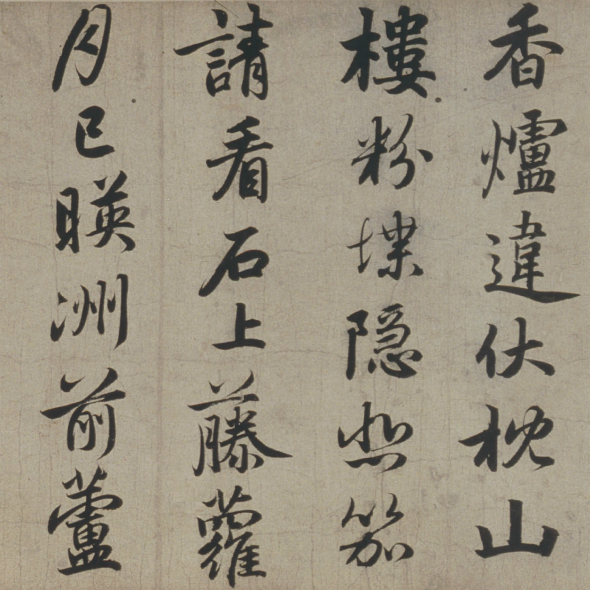 香爐違伏枕山
樓粉堞隐悲笳
請看石上藤蘿
月已暎洲前蘆